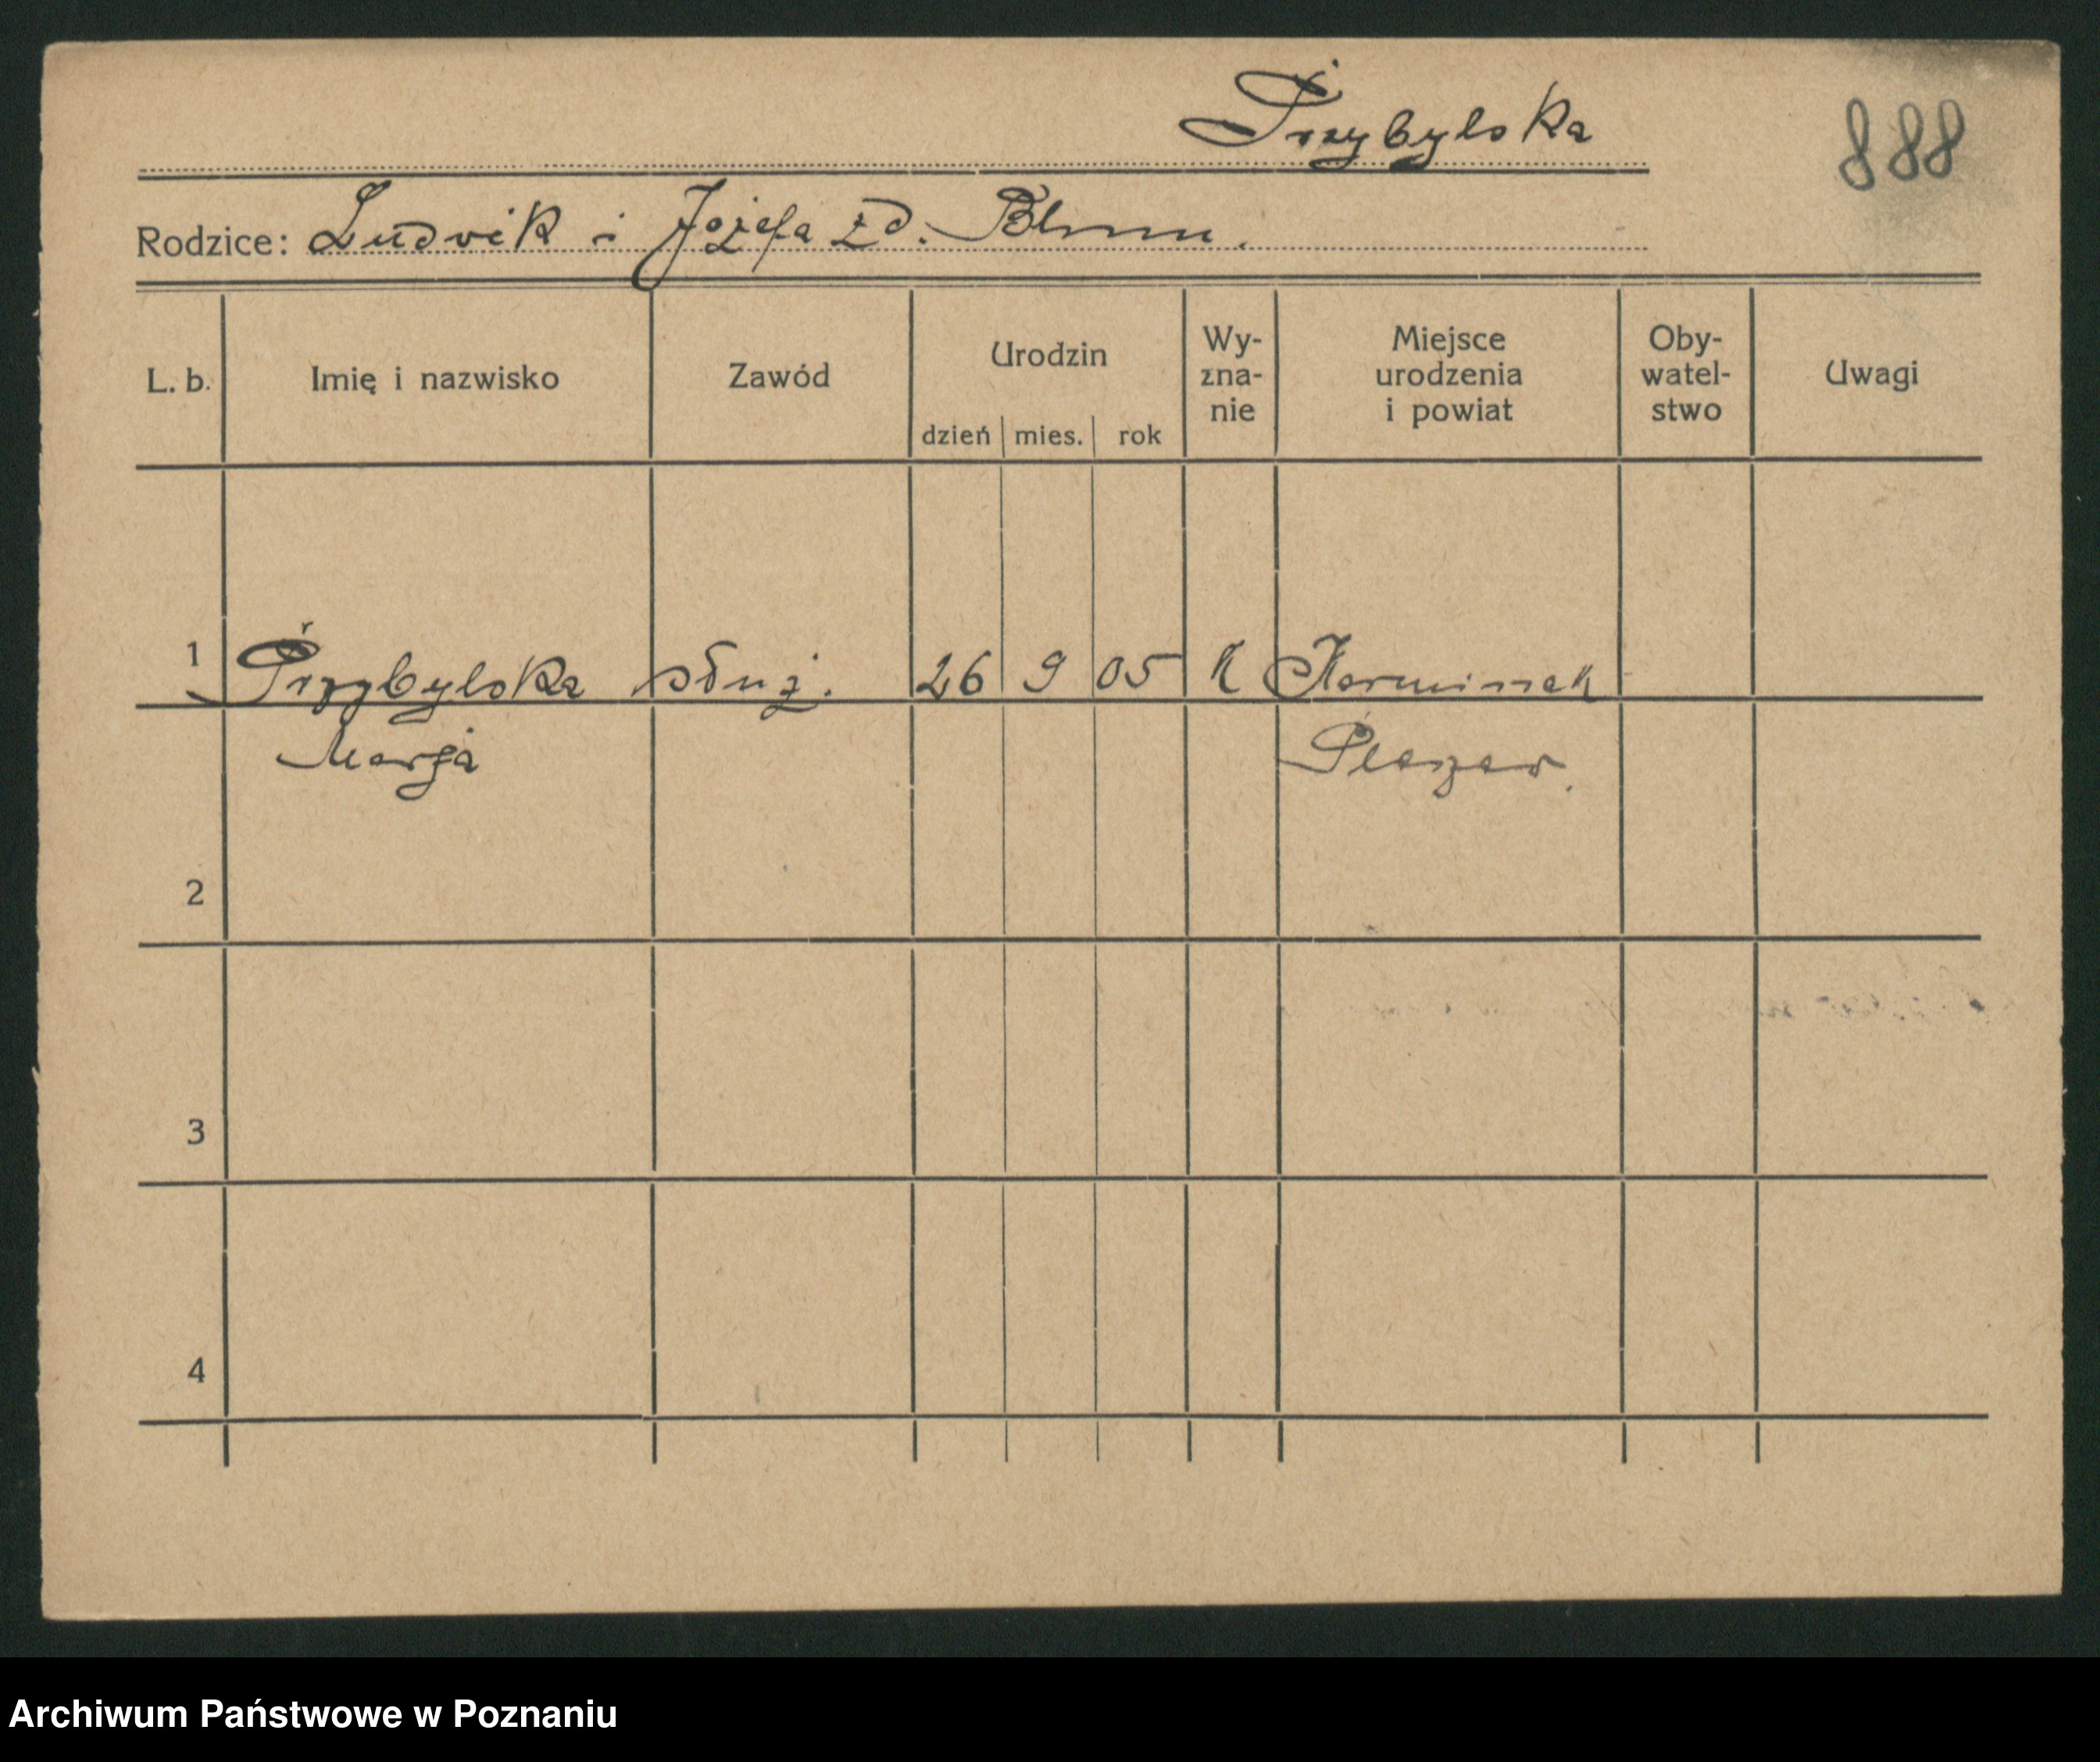 Przybylska
888
Rodzice: Ludwik i Józefa zd. Blum.
L. b. Imię i nazwisko Zawód Urodzin dzień mies. rok Wy-zna-nie Miejsce urodzenia i powiat Oby-watel-stwo Uwagi
1 Przybylska służ. 26 9 05 K Karminek
Marja Pleszew.
2
3
4
Archiwum Państwowe w Poznaniu